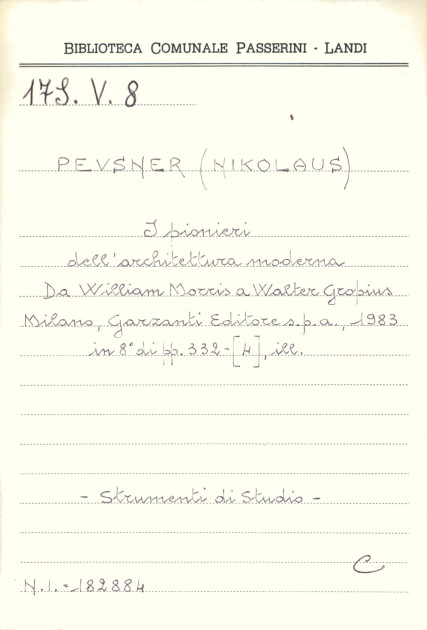 BIBLIOTECA COMUNALE PASSERINI - LANDI
17S. V. 8
PEVSNER (NIKOLAUS)
I pionieri
dell'architettura moderna
Da William Morris a Walter Gropius
Milano, Garzanti Editore s.p.a., 1983
in 8° di pp. 332-[4], ill.
- Strumenti di Studio -
C
N.I. - 182884